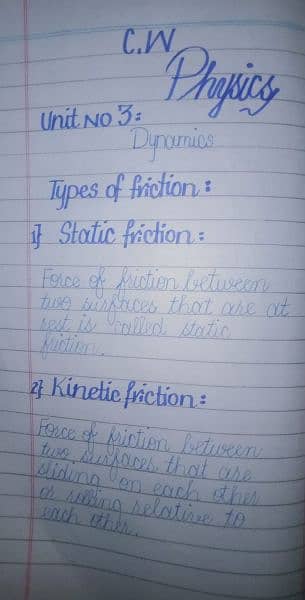 C.W
Physics
Unit NO 3:
Dynamics
Types of friction:
1} Static friction:
Force of friction between
two surfaces that are at
rest is called static
friction.
2} Kinetic friction:
Force of friction between
two surfaces that are
sliding on each other
or rolling relative to
each other.